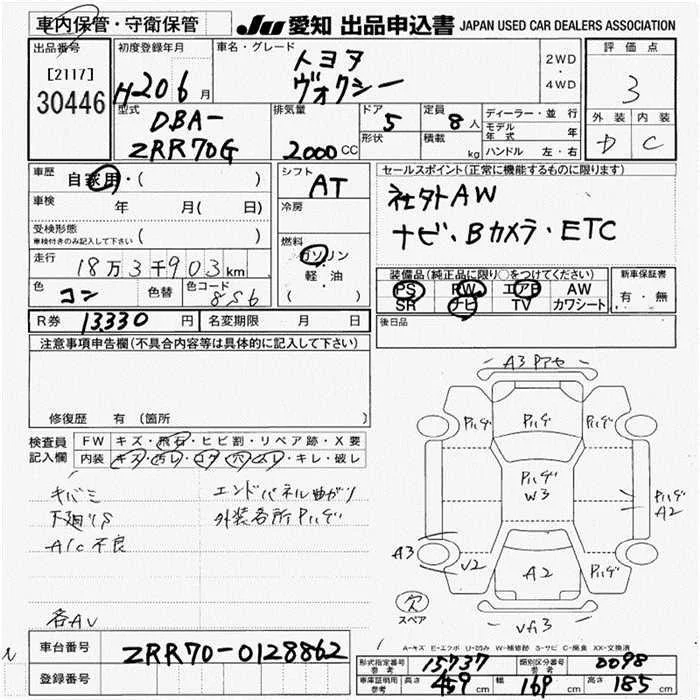 車内保管・守衛保管
JU 愛知 出品申込書 JAPAN USED CAR DEALERS ASSOCIATION
出品番号
[2117]
30446
初度登録年月
H20 6 月
車名・グレード
トヨタ
ヴォクシー
2WD
・
4WD
評価点
3
外装 内装
D C
型式
DBA-
ZRR70G
排気量
2000 CC
ドア
5
形状
定員
8 人
積載
kg
ディーラー・並行
モデル年式 年
ハンドル 左・右
車歴
自家用・( )
車検
年 月( 日)
受検形態
車検付きのみ記入して下さい ( )
走行
18万3千903km
色
コン
色替
色コード
8S6
シフト
AT
冷房
燃料
ガソリン
・
軽・油
( )
セールスポイント(正常に機能するものに限ります)
社外AW
ナビ・Bカメラ・ETC
装備品(純正品に限り○をつけてください)
PS PW エアB AW
SR ナビ TV カワシート
新車保証書
有・無
R券 13,330 円
名変期限 月 日
後日品
注意事項申告欄(不具合内容等は具体的に記入して下さい)
修復歴 有 (箇所 )
検査員
記入欄
FW キズ・飛石・ヒビ割・リペア跡・X要
内装 キズ・汚レ・コゲ・穴・スレ・キレ・破レ
キバミ
下廻りS
A/C不良
エンドパネル曲がり
外装各所Pハゲ
各AU
A3 Pアセ
Pハゲ
Pハゲ
Pハゲ
Pハゲ
W3
Pハゲ
A2
A3
V2
A2
Pハゲ
欠
スペア
VA3
A-キズ E-エクボ U-凹み W-補修跡 S-サビ C-腐食 XX-交換済
車台番号 ZRR70-0128862
登録番号
形式指定番号 参考 15737
類別区分番号 参考 0098
車庫証明用 参考 長さ 459 cm 幅 169 cm 高さ 185 cm